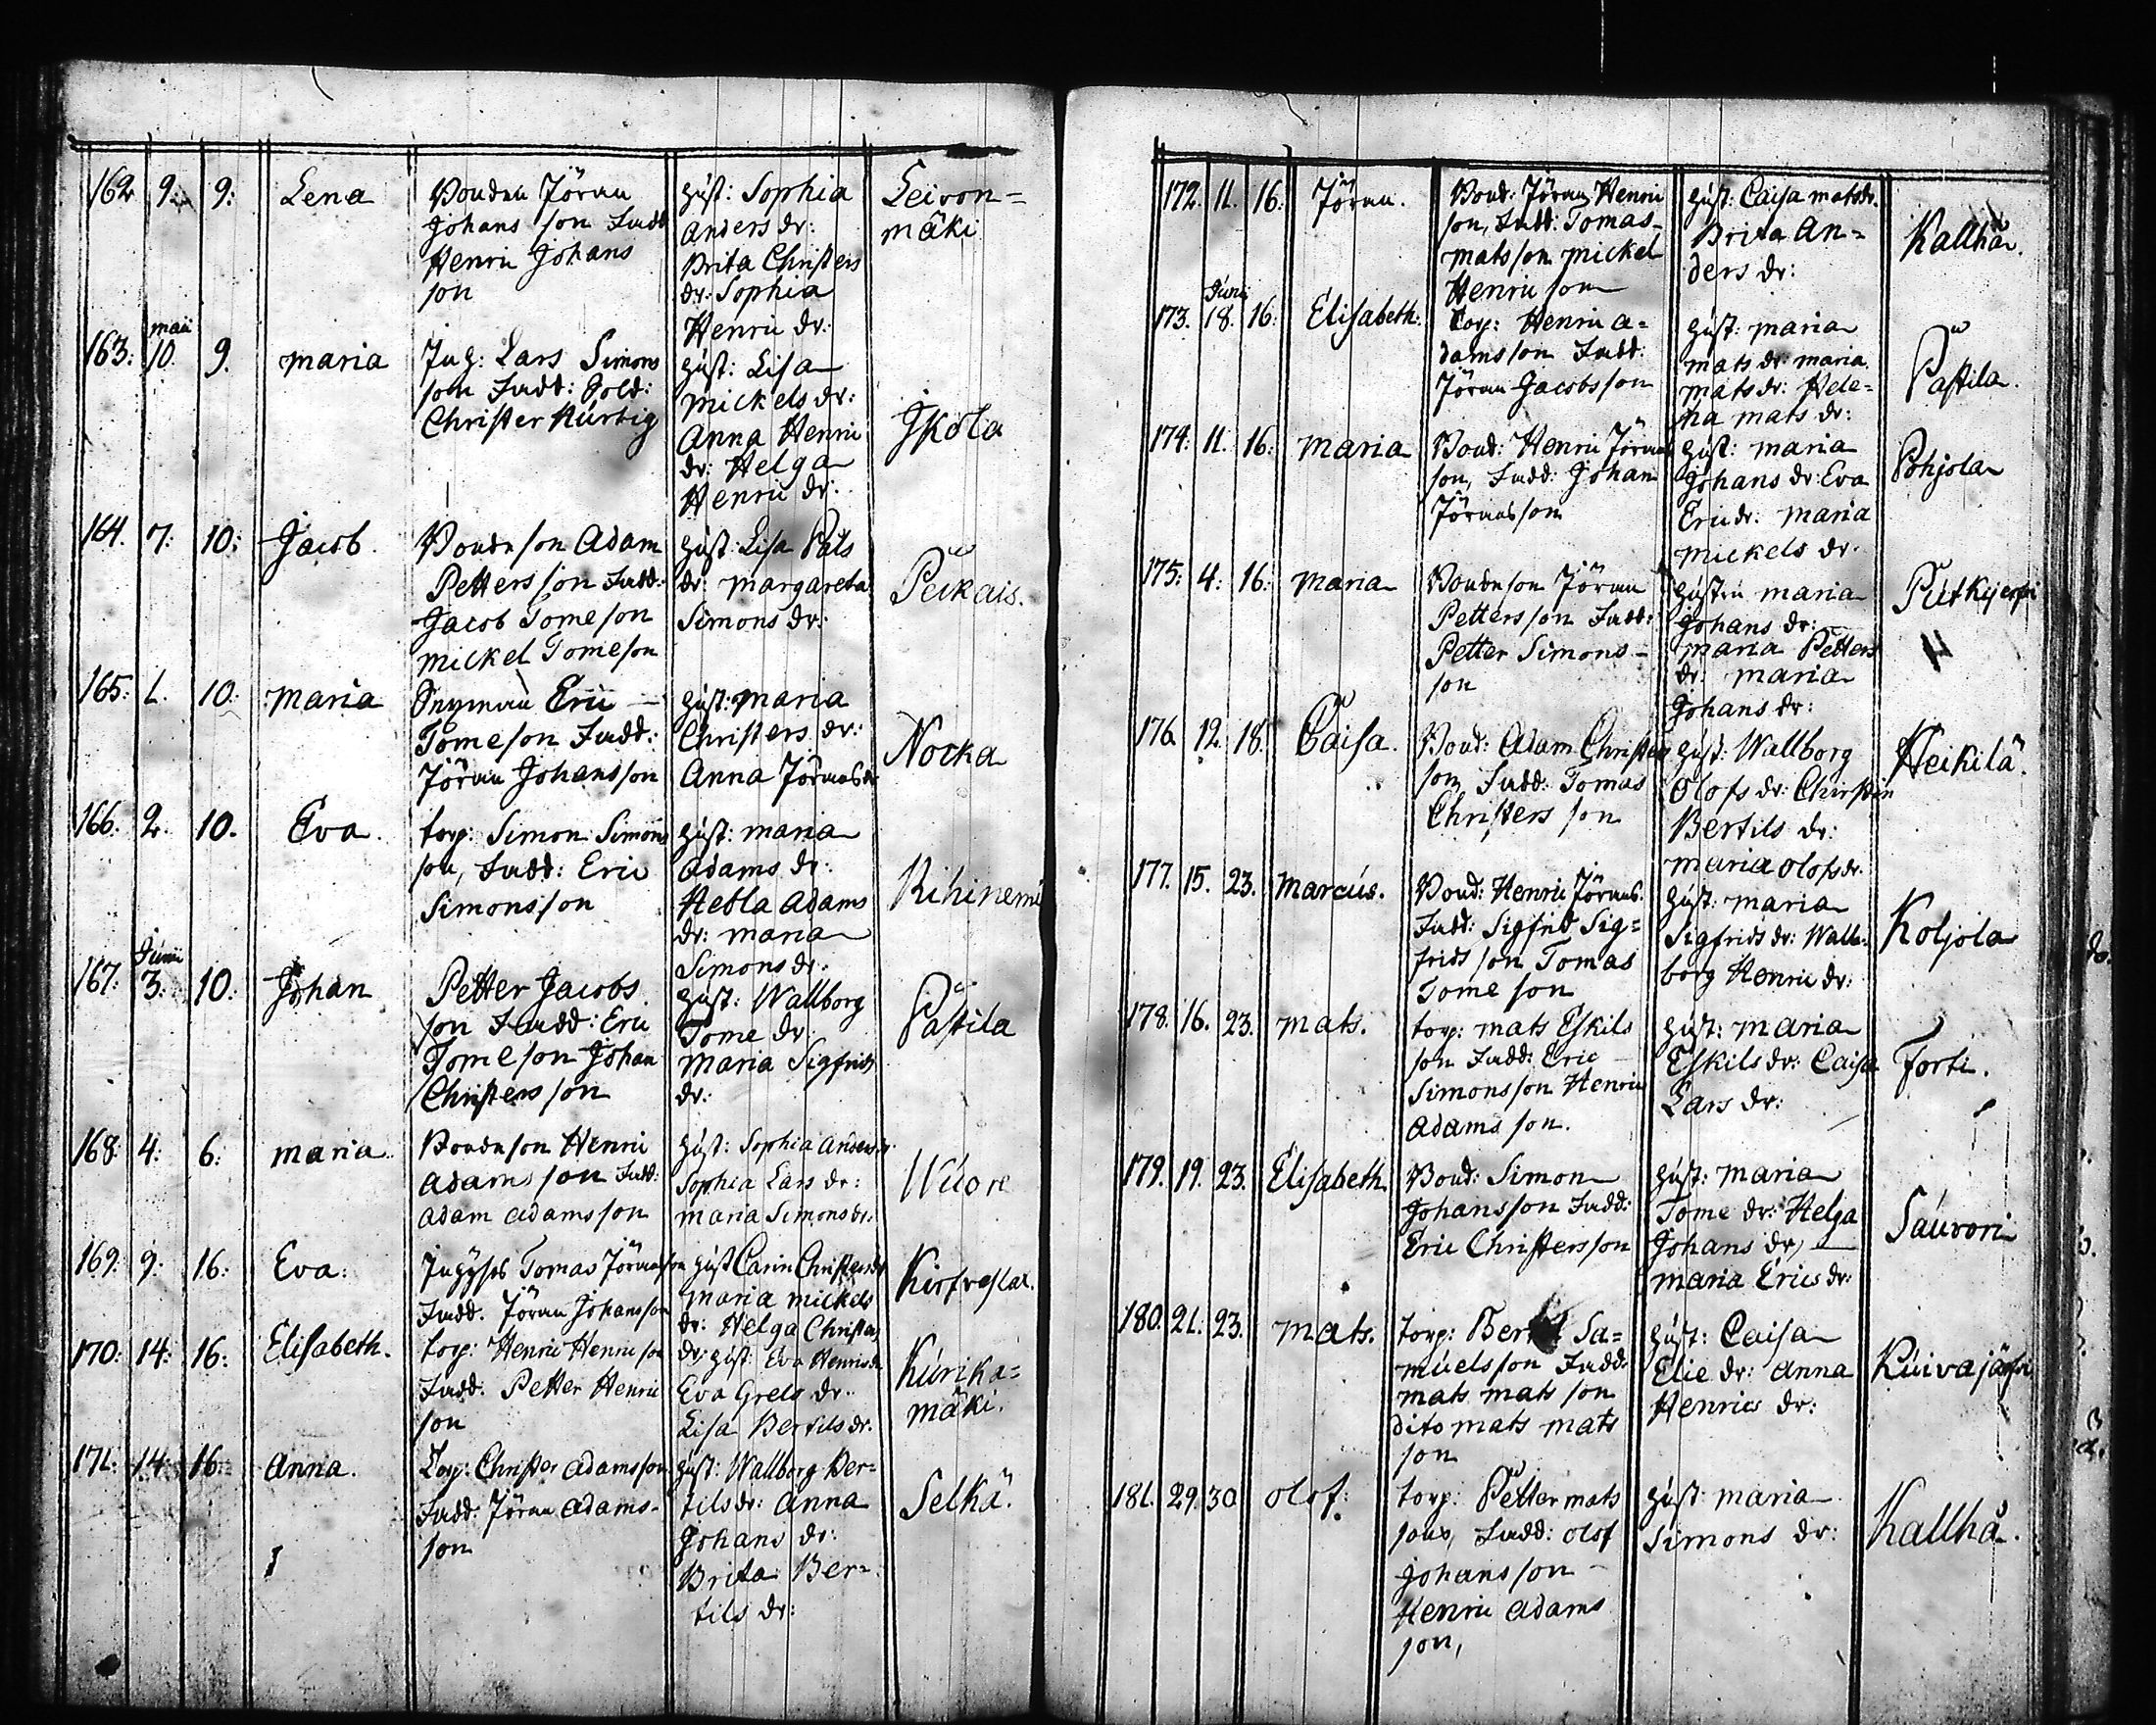 162 9. 9: Lena
Bonden Jöran
Johans son Fadd
Henric Johans
son
Hust: Sophia
Anders dr:
Brita Christers
dr: Sophia
Henric dr:
Leivon=
mäki
163: maii 10. 9. maria
Inh: Lars Simons
son Fadd: Sold:
Christer Hurtig
Hust: Lisa
Mickels dr:
Anna Henric
dr: Helga
Henric dr:
Jkola
164. 7: 10: Jacob.
Bondeson Adam
Petters son Fadd:
Jacob Tomeson
Mickel Tomeson
Hust: Lisa Påls
dr: margareta
Simons dr:
Peikais.
165: 1. 10: maria
Eric
Tomeson Fadd:
Jöran Johansson
Hust: maria
Christers dr:
Anna Jöransdr
Nocka
166. 2. 10. Eva.
torp: Simon Simons
son, Fadd: Eric
Simonsson
Hust: maria
Adams dr:
Hebla Adams
dr: maria
Simons dr:
Rihinemi
167: Junii 3. 10: Johan
Petter Jacobs
son Fadd: Eric
Tomeson Johan
Christersson
Hust: Wallborg
Tome dr:
Maria Sigfrids
dr:
Påstila
168: 4: 6: maria.
Bondeson Henric
Adams son Fadd:
Adam adamsson
Hust: Sophia Andersdr.
Sophia Lars dr:
maria Simonsdr:
Wuore
169: 9: 16: Eva:
Tomas Jöransson
Fadd. Jöran Johansson
Hust Carin Christersdr
maria mickels
dr: Helga Christers
dr:
170: 14: 16: Elisabeth.
torp: Henric Henricson
Fadd: Petter Henric
son
Hust: Eva Henricsdr
Eva Grels dr:
Lisa Bertils dr.
Kurika=
mäki.
171: 14: 16: Anna.
Torp: Christer Adamsson
Fadd: Jöran Adams-
son
Hust: Wallborg Ber=
tilsdr: Anna
Johans dr:
Brita Ber=
tils dr:
Selkä.
172. 11. 16. Jöran.
Bond: Jöran Henric
son, Fadd: Tomas
Matsson Mickel
Henricson
Hust: Caisa matsdr.
Brita An=
ders dr:
Kallhå.
173. Junij 18. 16: Elisabeth.
Torp: Henric A=
damsson Fadd:
Jöran Jacobsson
Hust: maria
mats dr: maria
matsdr: Hele=
na mats dr:
Påstila.
174: 11. 16: maria
Bond: Henric Jörans
son, Fadd: Johan
Jöransson
Hust: maria
Johans dr: Eva
Ericdr: maria
mickels dr.
Pohjola
175: 4: 16: maria
Bondeson Jöran
Petters son Fadd:
Petter Simons
son
Hustru maria
Johans dr:
maria Petters
dr: maria
Johans dr:
Putkijerfvi
176. 12. 18. Caisa.
Bond: Adam Christers
son Fadd: Tomas
Christers son
Hust: Wallborg
Olofs dr: Christin
Bertils dr:
maria olofsdr.
Heikilä.
177. 15. 23. Marcus.
Bond: Henric Jörans.
Fadd: Sigfrid Sig=
frids son Tomas
Tome son
Hust: maria
Sigfrids dr: Wall=
borg Henric dr:
Koljola
178. 16. 23. mats.
torp: mats Eskils
son Fadd: Eric
Simonsson Henric
Adamsson.
Hust: maria
Eskilsdr: Caisa
Lars dr:
Torti.
179. 19. 23. Elisabeth
Bond: Simon
Johansson Fadd:
Eric Christersson
Hust: maria
Tome dr: Helga
Johans dr,
maria Erics dr:
Sauvori
180. 21. 23. mats.
torp: Sa=
muelsson Fadd:
mats mats son
dito mats mats
son
Hust: Caisa
Elie dr: Anna
Henrics dr:
Kuivajärfvi
181. 29. 30 olof.
torp: Petter mats
sons, Fadd: olof
Johansson
Henric Adams
son,
Hust: maria
Simons dr:
Kallhå.